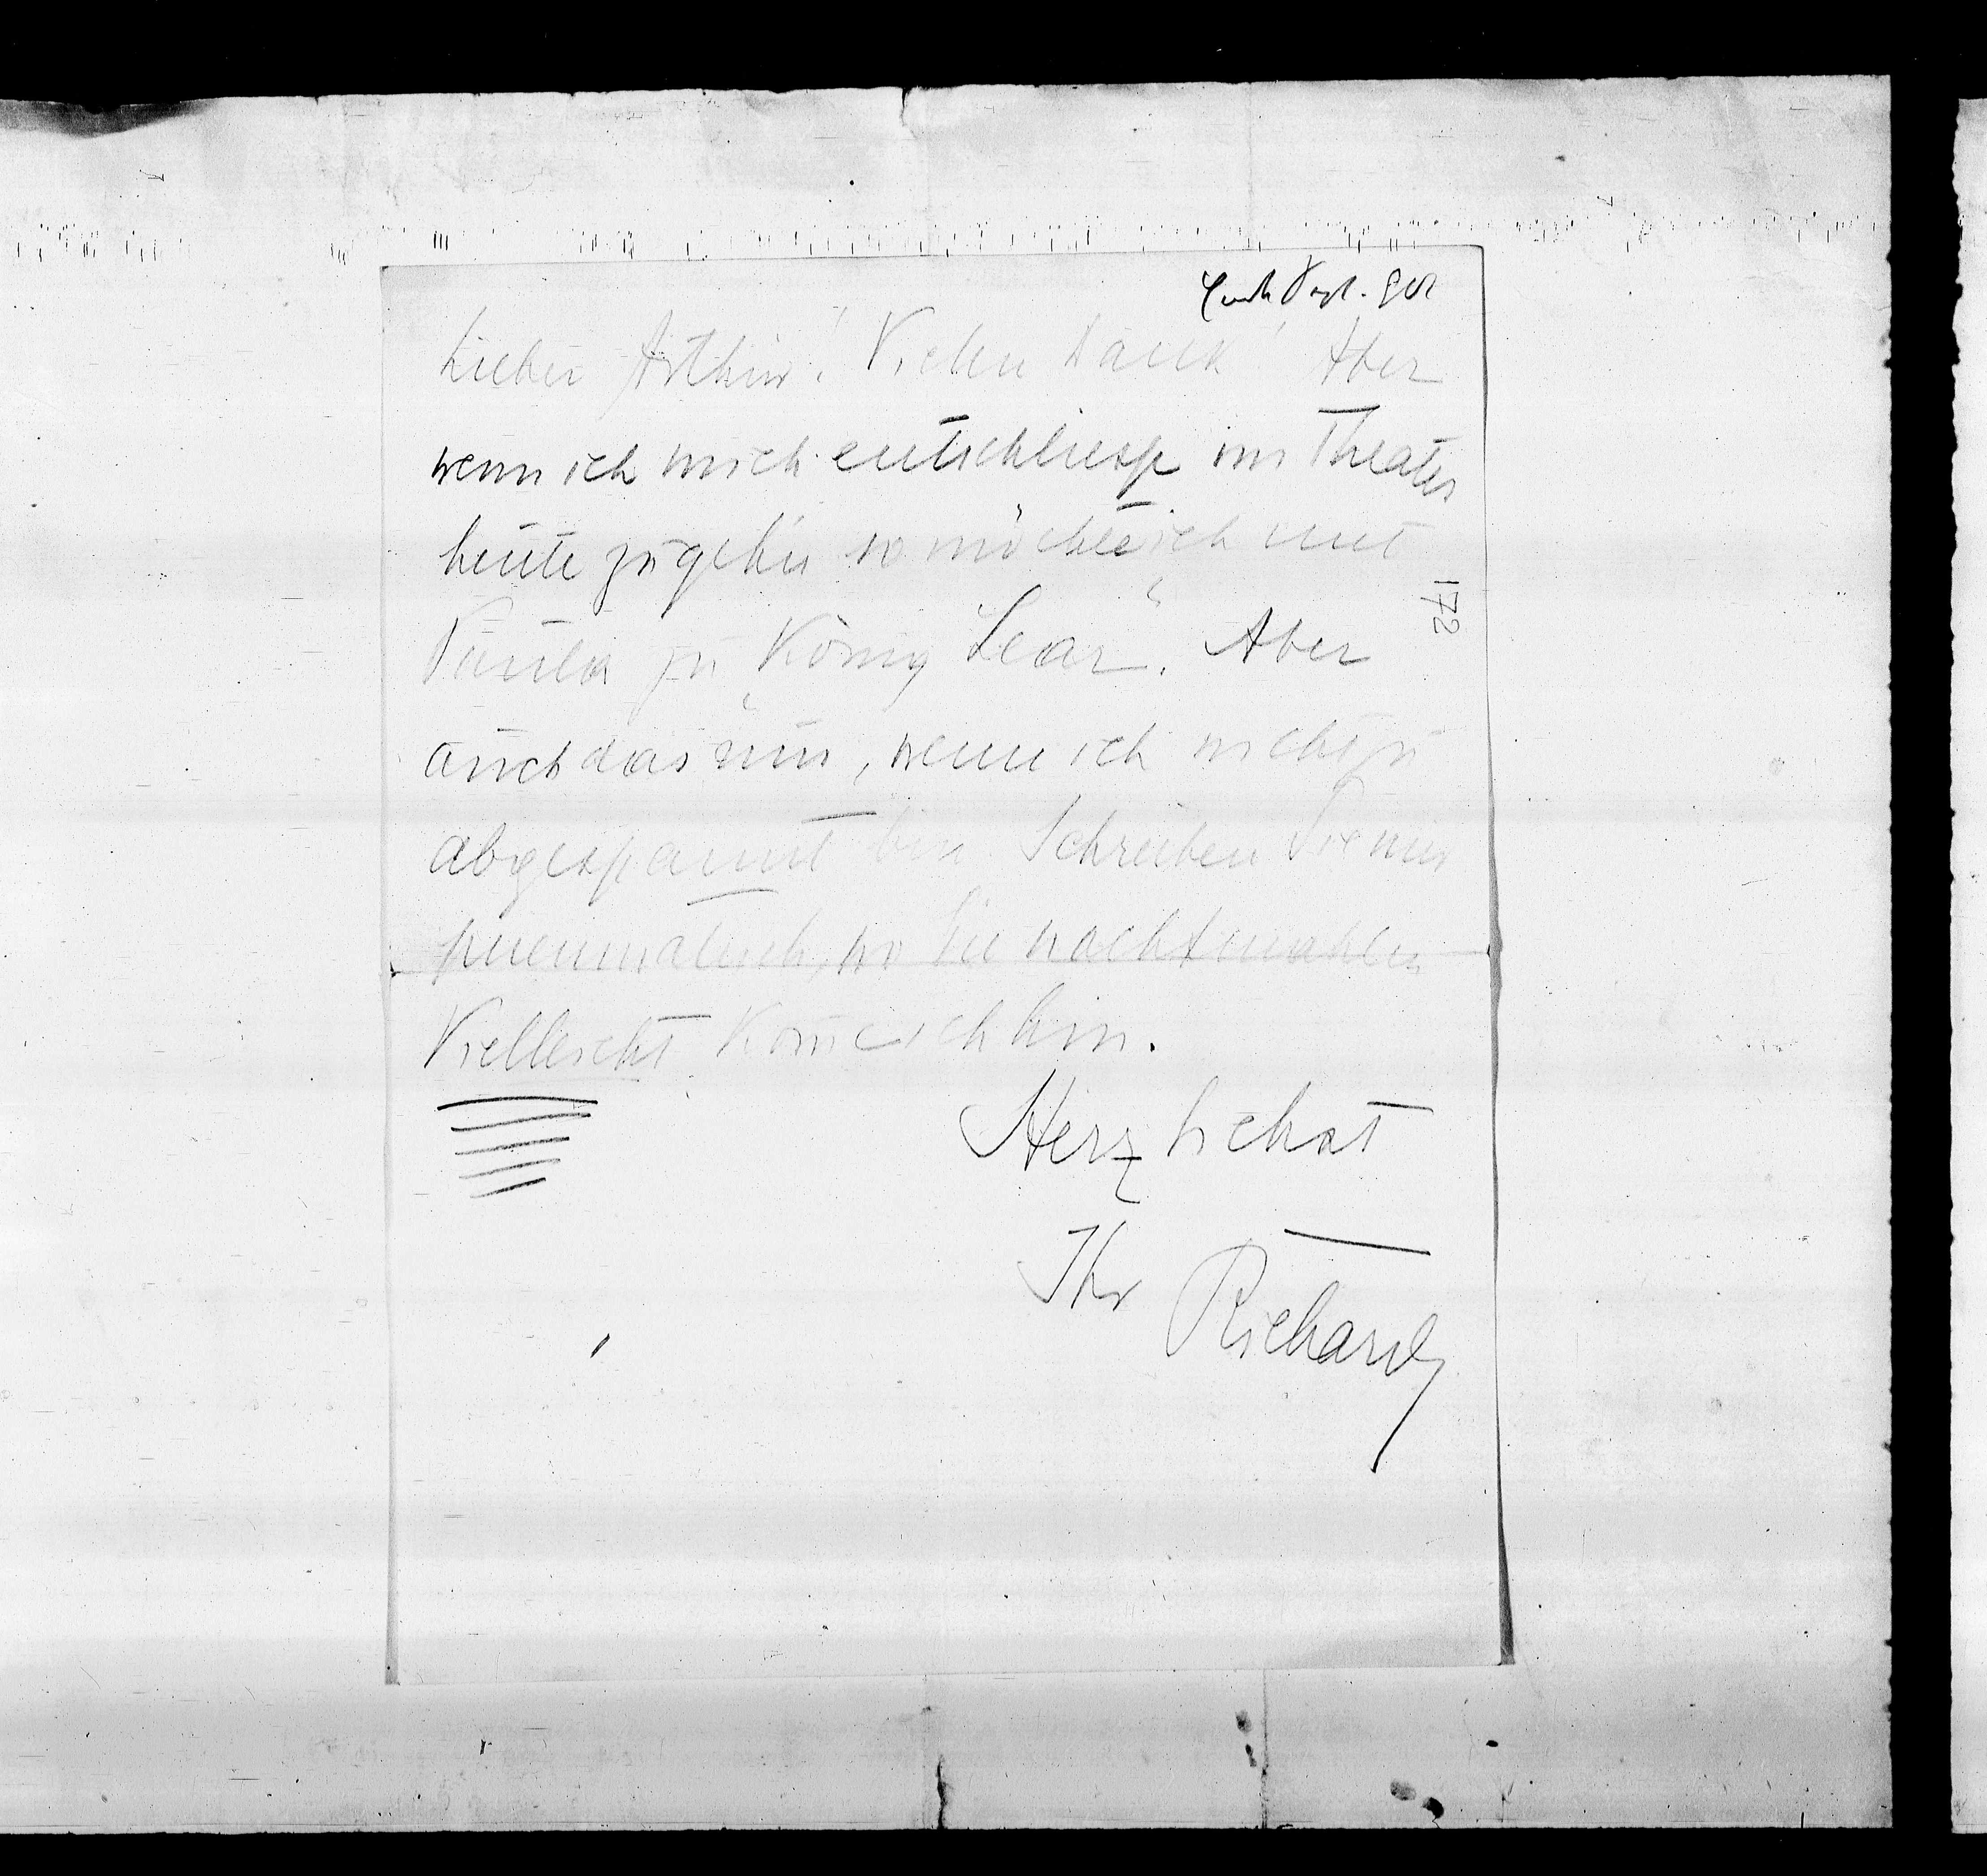 Lieber Arthur! Vielen Dank! Aber
wenn ich mich entschliesse ins Theater
heute zu gehn so möchte ich mit
Paula zu „König Lear“. Aber
auch das nur, wenn ich nicht zu
abgespannt bin. Schreiben Sie mir
pneumatisch, wo Sie nachtmahlen
Vielleicht kom̄e ich hin.
Herzlichst
Ihr Richard
172